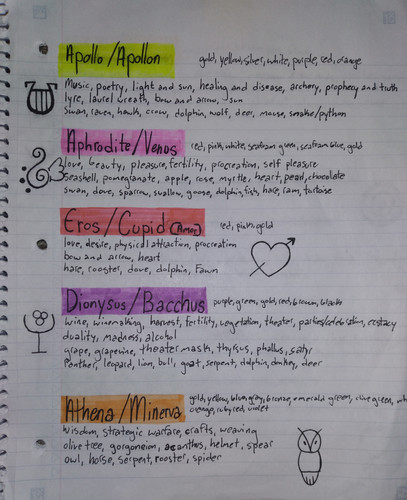 Apollo/Apollon
gold, yellow, silver, white, purple, red, orange
Music, poetry, light and sun, healing and disease, archery, prophecy and truth
lyre, laurel wreath, bow and arrow, sun
Swan, raven, hawk, crow, dolphin, wolf, deer, mouse, snake/python
Aphrodite/Venus
red, pink, white, seafoam green, seafoam blue, gold
love, beauty, pleasure, fertility, procreation, self pleasure
Seashell, pomegranate, apple, rose, myrtle, heart, pearl, chocolate
swan, dove, sparrow, swallow, goose, dolphin, fish, hare, ram, tortoise
Eros/Cupid (Amor)
red, pink, gold
love, desire, physical attraction, procreation
bow and arrow, heart
hare, rooster, dove, dolphin, Fawn
Dionysus/Bacchus
purple, green, gold, red, brown, black
wine, winemaking, harvest, fertility, vegetation, theater, parties/celebration, ecstacy
duality, madness, alcohol
grape, grapevine, theater mask, thyrsus, phallus, satyr
Panther, leopard, lion, bull, goat, serpent, dolphin, donkey, deer
Athena/Minerva
gold, yellow, blue, gray, bronze, emerald green, olive green,
orange, ruby red, violet
Wisdom, strategic warfare, crafts, weaving
olive tree, gorgoneion, acanthus, helmet, spear
owl, horse, serpent, rooster, spider